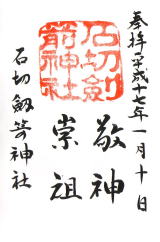 奉拝 平成十七年一月十日
石切剣
箭神社
敬神
崇祖
石切劔箭神社